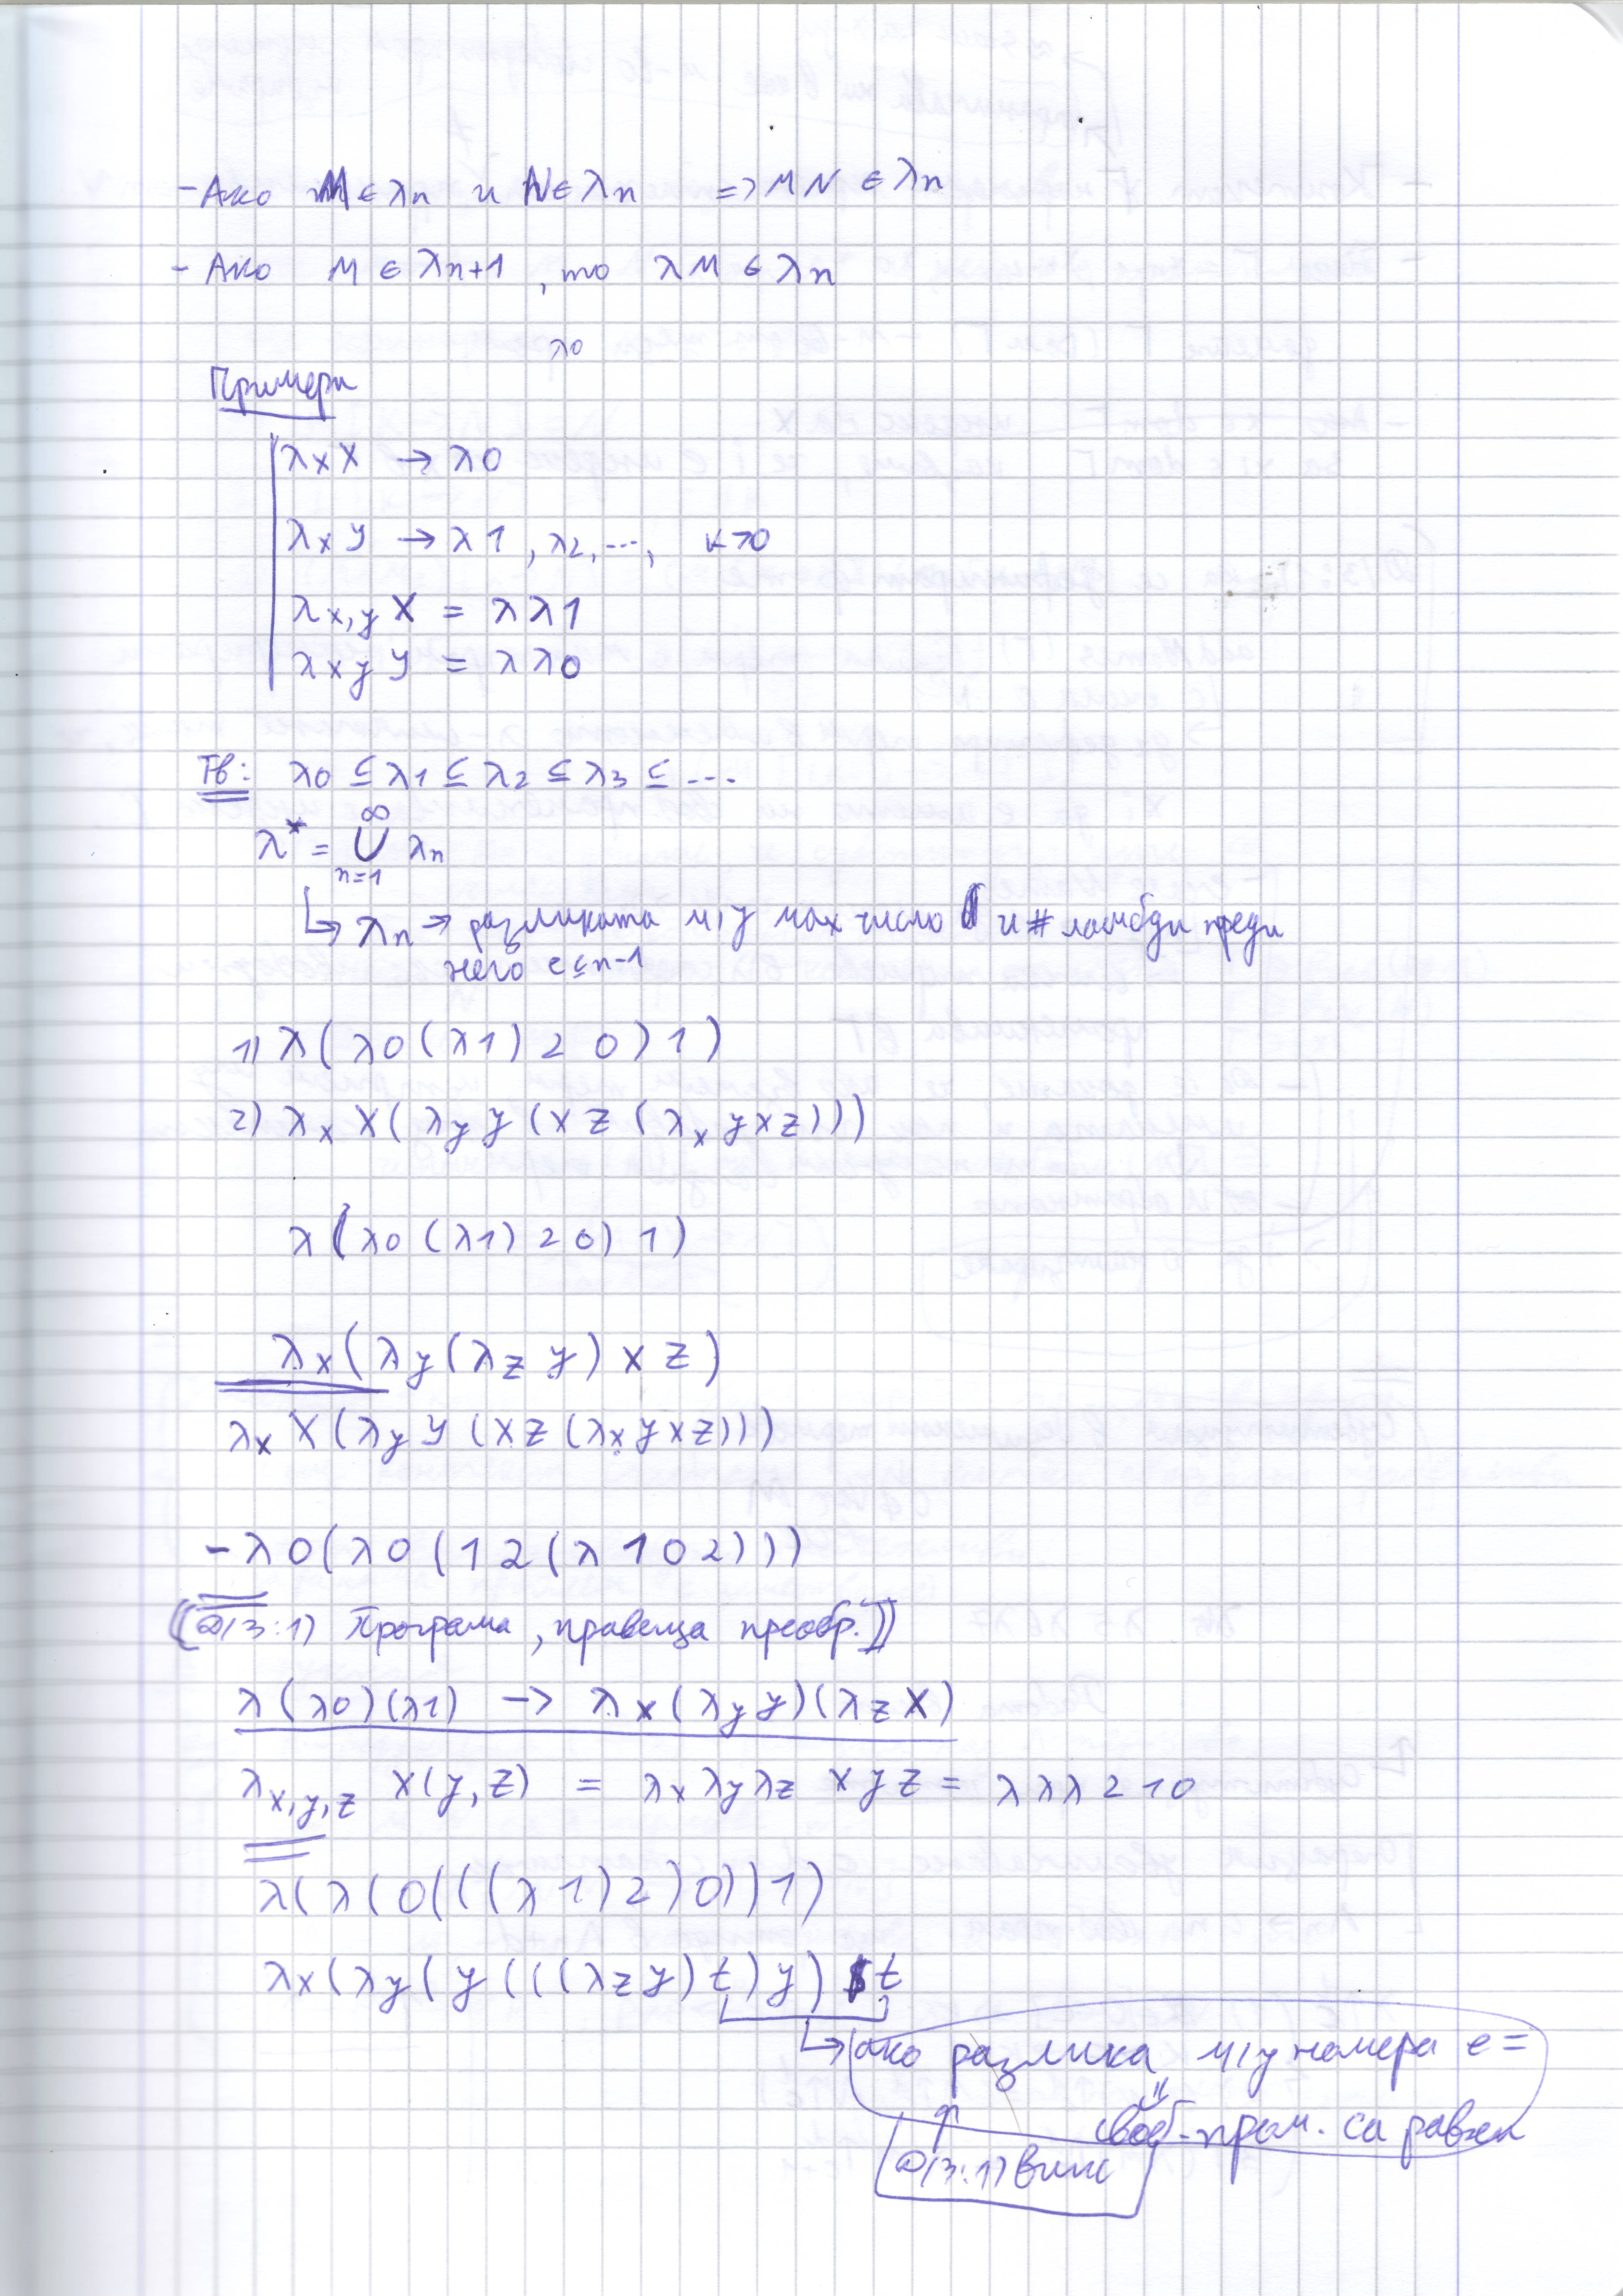 - Ако M ∈ λn и N ∈ λn => MN ∈ λn
- Ако M ∈ λn+1, то λM ∈ λn
λ0
Примери
λx x → λ0
λx y → λ1, λ2, ..., k>0
λx,y x = λλ1
λxy y = λλ0
Тв: λ0 ⊆ λ1 ⊆ λ2 ⊆ λ3 ⊆ ...
λ* = ∞ ∪ n=1 λn
↳ λn → разликата м/у мах число и # ламбди преди
него е ≤ n-1
1) λ(λ0(λ1)20)1)
2) λx x(λy y(xz(λx yxz)))
λ(λ0(λ1)20)1)
λx(λy(λz y)xz)
λx x(λy y(xz(λx yxz)))
- λ0(λ0(12(λ102)))
((Д(3:1) Програма, правеща преобр.))
λ(λ0)(λ1) → λx(λy y)(λz x)
λx,y,z x(y,z) = λxλyλz xyz = λλλ210
λ(λ(0(((λ1)2)0))1)
λx(λy(y(((λzy)t)y) t
↳ ако разлика м/у номера е =
⇓
своб. пром. са равни
↑
Д(3:1)